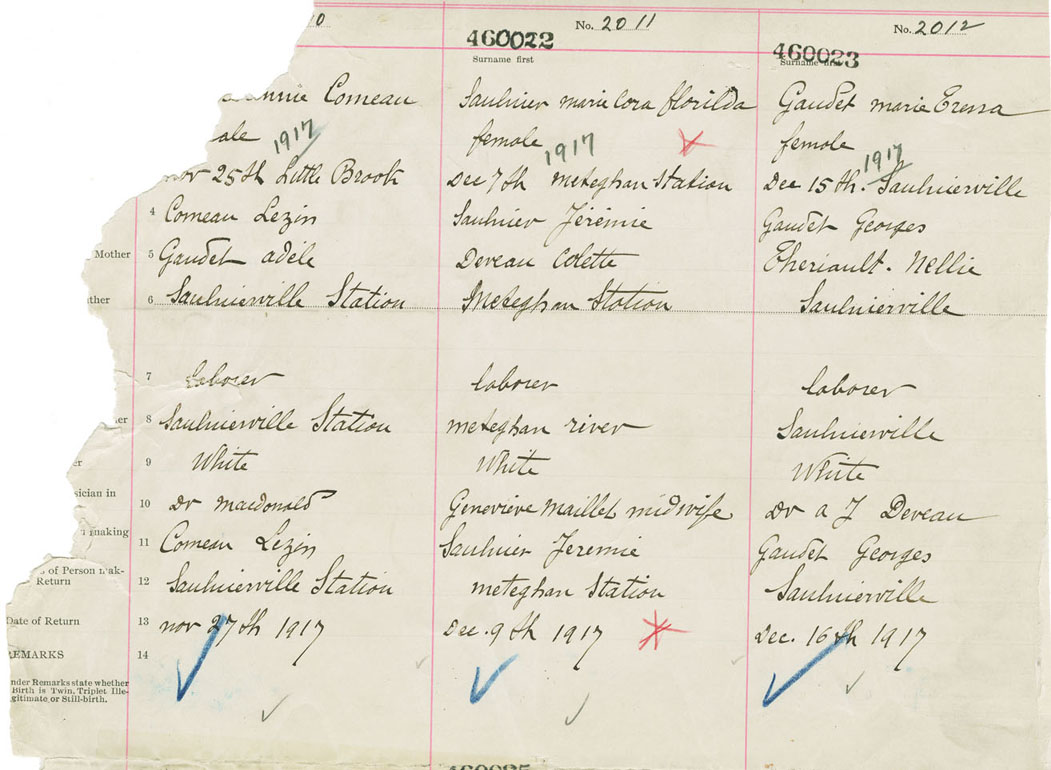 0 No. 2011 No. 2012
460022 460023
Surname first Surname first
Comeau Saulnier marie Cora florilda Gaudet marie Eressa
ale 1917 female 1917 female 1917
25th Little Brook Dec 7th meteghan Station Dec 15th. Saulnierville
4 Comeau Lezin Saulnier Jérémie Gaudet Georges
Mother 5 Gaudet adèle Deveau Colette Theriault. Nellie
ather 6 Saulnierville Station Meteghan Station Saulnierville
7 laborer laborer laborer
er 8 Saulnierville Station meteghan river Saulnierville
er 9 White White White
sician in 10 Dr macdonald Genevieve Maillet midwife Dr a J Deveau
making 11 Comeau Lezin Saulnier Jeremie Gaudet Georges
s of Person mak-
Return 12 Saulnierville Station meteghan Station Saulnierville
Date of Return 13 nov 27th 1917 Dec. 9th 1917 Dec. 16th 1917
REMARKS 14
nder Remarks state whether
Birth is Twin, Triplet Ille-
gitimate or Still-birth.